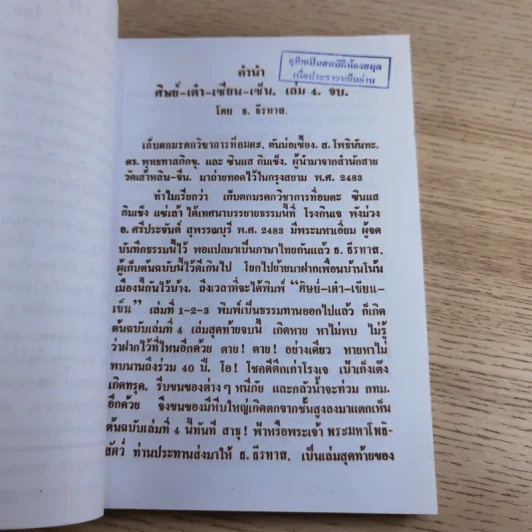 อุทิศเป็นสมบัติห้องสมุด
เพื่อประชาชนยืมอ่าน
คำนำ
ศิษย์-เต๋า-เซียน-เซ็น. เล่ม 4. จบ.
โดย ธ. ธีรทาส.
เก็บตกมรดกวิชาการที่อมตะ. ตันม่อเซี้ยง. ส. โพธินันทะ.
ดร. พุทธทาสภิกขุ. และ ซินแส กิมเช็ง. ผู้นำมาจากสำนักสาย
วัดเส้าหลิน-จีน. มาถ่ายทอดไว้ในกรุงสยาม พ.ศ. 2483
ทำไมเรียกว่า เก็บตกมรดกวิชาการที่อมตะ ซินแส
กิมเช็ง แซ่เล้า ได้เทศนาบรรยายธรรมนี้ที่ โรงกินเจ พังม่วง
อ. ศรีประจันต์ สุพรรณบุรี พ.ศ. 2483 มีพระมหาเอี่ยม ผู้จด
บันทึกธรรมนี้ไว้ พอแปลมาเป็นภาษาไทยกันแล้ว ธ. ธีรทาส.
ผู้เก็บต้นฉบับนี้ไว้ดีเกินไป โยกไปย้ายมาฝากเพื่อนบ้านโน้น
เมืองนี้กันไว้บ้าง. ถึงเวลาที่จะได้พิมพ์ “ศิษย์-เต๋า-เซียน-
เซ็น” เล่มที่ 1-2-3 พิมพ์เป็นธรรมทานออกไปแล้ว ก็เกิด
ต้นฉบับเล่มที่ 4 เล่มสุดท้ายจบนี้ เกิดหาย หาไม่พบ ไม่รู้
ว่าฝากไว้ที่ไหนอีกด้วย ตาย! ตาย! อย่างเดียว หายหาไม่
พบนานถึงร่วม 40 ปี. โอ! โชคดีตึกเก่าโรงเจ เป้าเก็งเต้ง
เกิดทรุด. รีบขนของต่างๆ หนีภัย และกลัวน้ำจะท่วม กทม.
อีกด้วย จึงขนของมีหีบใหญ่เกิดตกจากชั้นสูงลงมาแตกเห็น
ต้นฉบับเล่มที่ 4 นี้ทันที สาธุ! ฟ้าหรือพระเจ้า พระมหาโพธิ-
สัตว์ ท่านประทานส่งมาให้ ธ. ธีรทาส. เป็นเล่มสุดท้ายของ